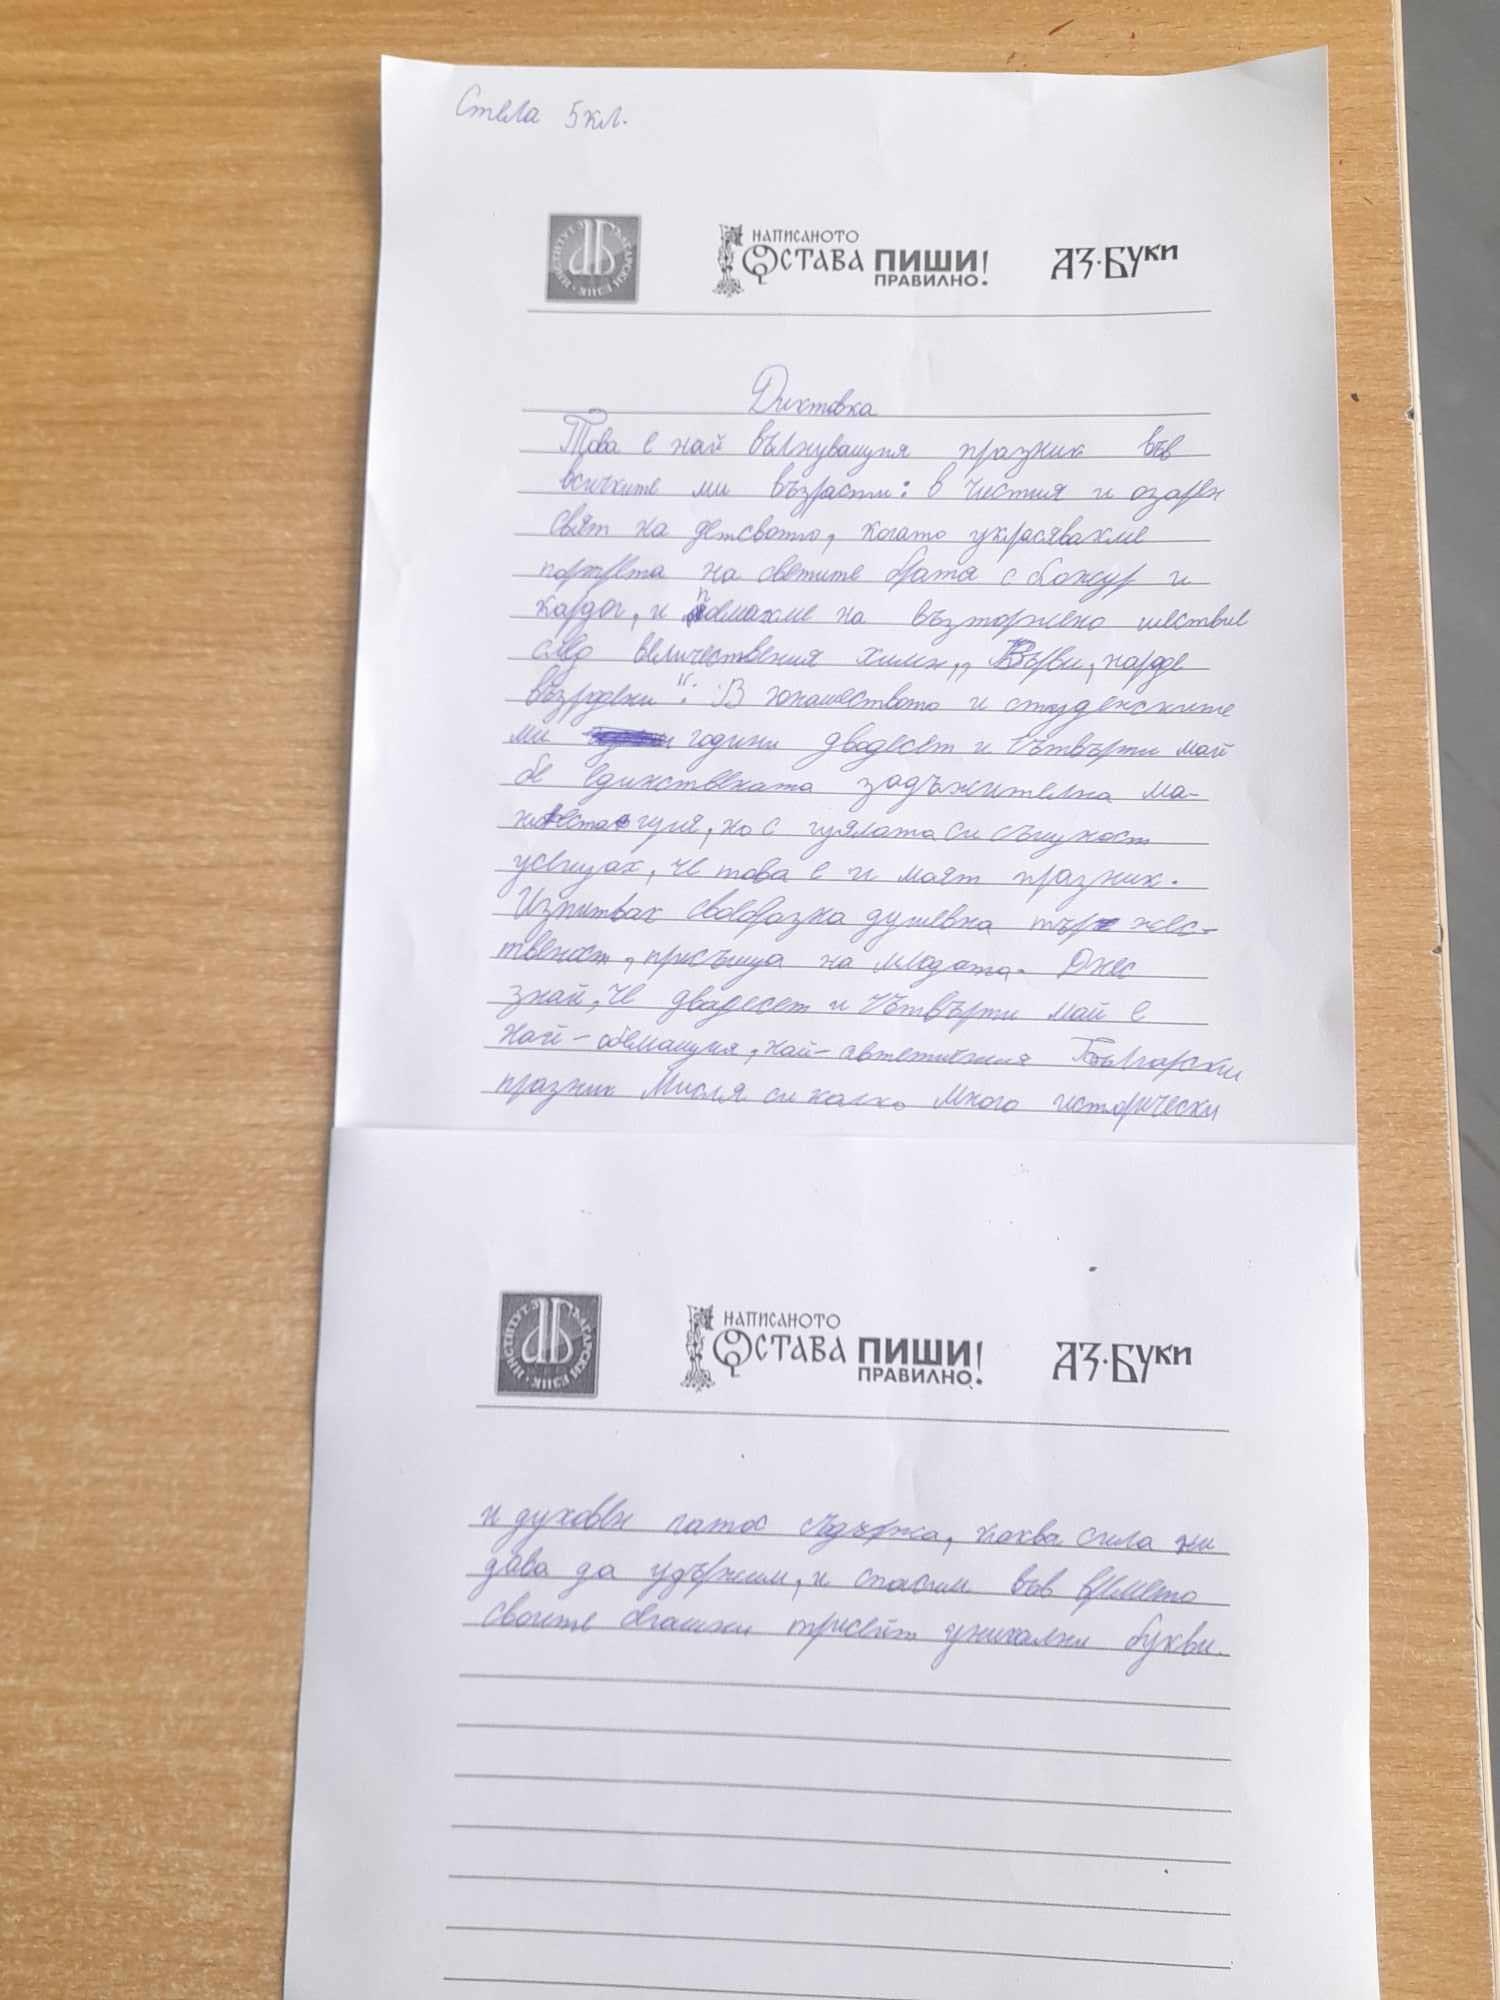 Стела 5 кл.
ИНСТИТУТ ЗА БЪЛГАРСКИ ЕЗИК
НАПИСАНОТО
ОСТАВА ПИШИ
ПРАВИЛНО!
АЗ·БУКИ
Диктовка
Това е най вълнуващия празник във
всичките ми възрасти: в чистия и озарен
свят на детсвото, когато украсявахме
портрета на светите братя с божур и
здравец, и поемахме на възторжено шествие
след величествения химн,, Върви, народе
възродени“. В юношеството и студенските
ми години двадесет и четвърти май
бе единствената задължителна ма-
нифестация, но с цялата си същност
усещах, че това е и моят празник.
Изпитвах своеобразна душевна тържес-
твеност, присъща на младата. Днес
знай, че двадесет и четвърти май е
най-обемащия, най-автетичния Български
празник Мисля си колко много исторически
ИНСТИТУТ ЗА БЪЛГАРСКИ ЕЗИК
НАПИСАНОТО
ОСТАВА ПИШИ
ПРАВИЛНО!
АЗ·БУКИ
и духовен патос съдържа, каква сила ни
дава да удържим, и спасим във времето
своите тристйт уникални букви.